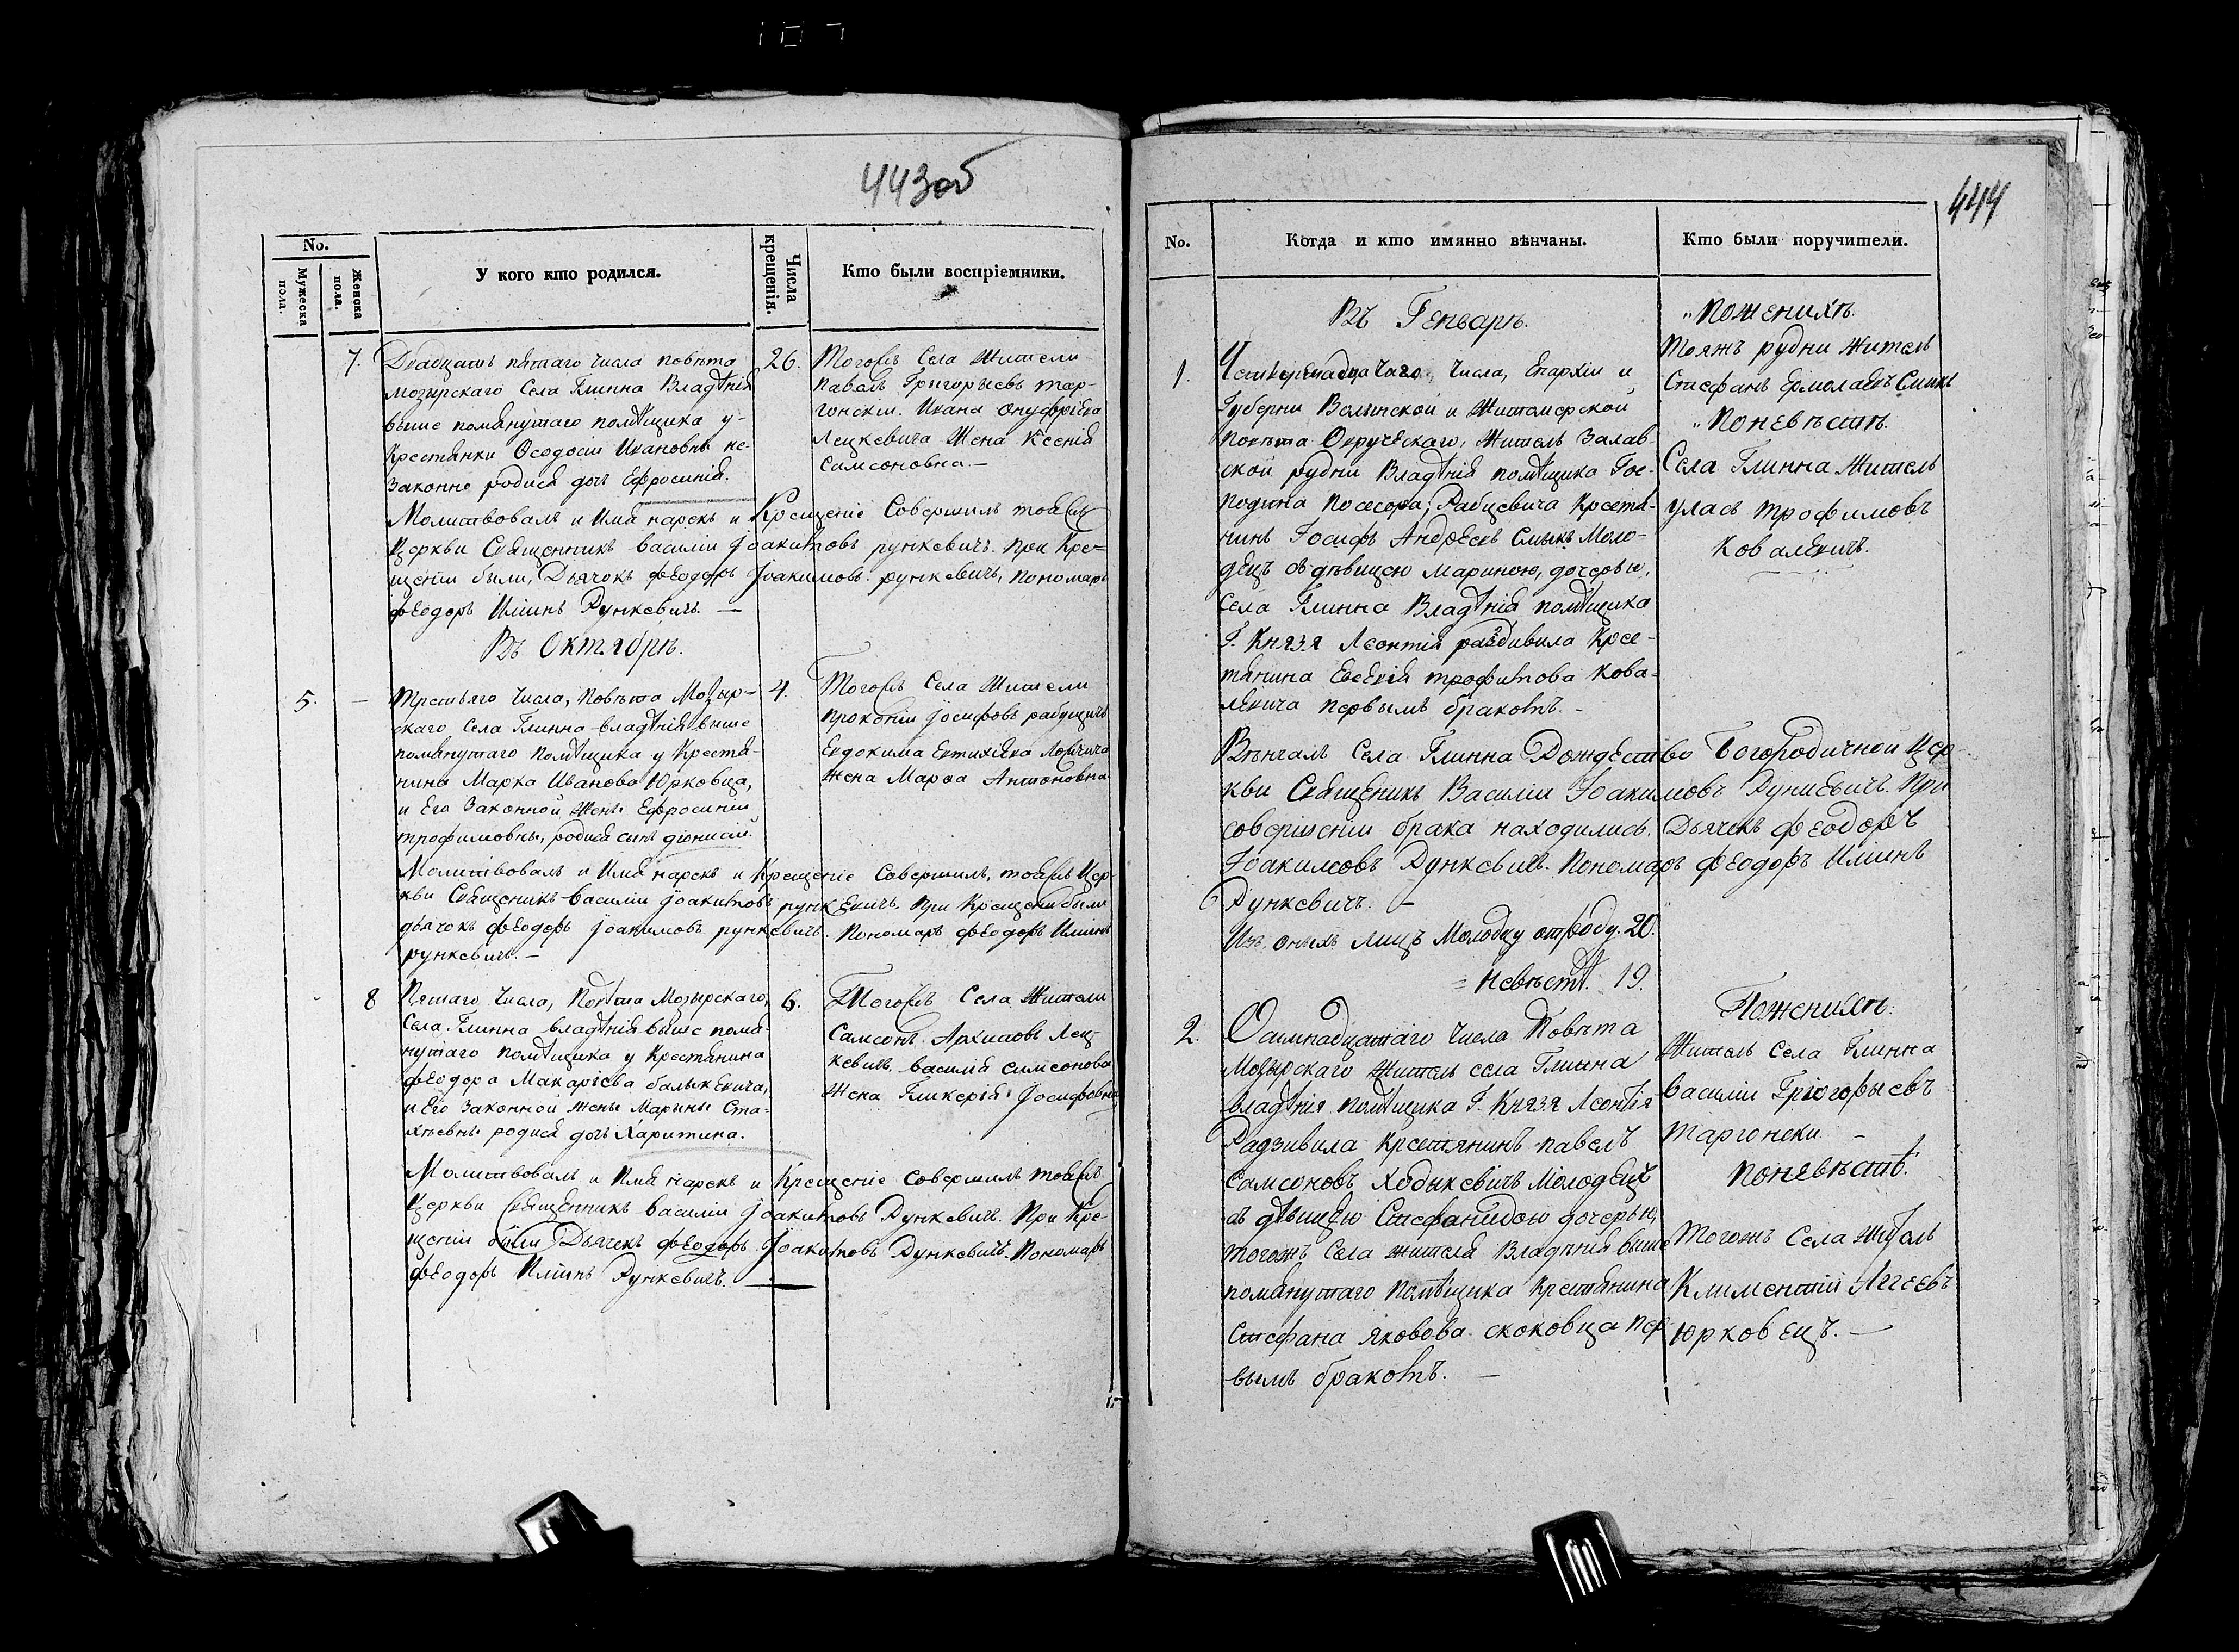 443об
No.
Мужеска пола.
Женска пола.
У кого кто родился.
Числа крещенія.
Кто были воспріемники.
7.
Двадцать пятаго числа повѣта
мозырскаго Села Глинна Владѣнія
выше помянутаго помѣщика у
Крестянки Феодосіи Ивановны не-
Законно родися дочь Ефросинія.
26.
Тогожъ Села Жители
Павелъ Григорьевъ тар-
гонскіи. Ивана Онуфріева
Лецкевича Жена Ксенія
Самсоновна. —
Молитвовалъ и Имя нарекъ и Крещеніе Совершилъ тояжъ
Церкви Священникъ Василіи Іоакимовъ рункевичъ. При Кре-
щеніи были, Дьячокъ Феодоръ Іоакимовъ рункевичъ, Пономаръ
Феодоръ Иліинъ Рункевичъ. —
Въ Октябрѣ.
5. —
Третьяго Числа, Повѣта Мозыр-
скаго Села Глинна владѣнія выше
помянутаго Помѣщика у Крестя-
нина Марка Иванова Юрковца,
и Его Законной Жены Ефросиніи
трофимовны, родися сынъ Діонисій.
4.
Тогожъ Села Жители
Прокопіи Іосифовъ
Евдокима
Жена Марфа Антоновна
Молитвовалъ и Имя нарекъ и Крещеніе Совершилъ, тояжъ Цер-
кви Священикъ Василіи Іоакимовъ рункевичъ. При Крещеніи были
дьячокъ Феодоръ Іоакимовъ рункевичъ. Пономаръ Феодоръ Иліинъ
рункевичъ. —
8
Пятаго Числа, Повѣта Мозырскаго,
Села Глинна владѣнія выше помя-
нутаго помѣщика у Крестянина
Феодора Макаріева балыкевича,
и Его Законной жены Марыны Ста-
хѣевны родися дочь Харитина.
6.
Тогожъ Села Жители
Самсонъ Архиповъ Лец-
кевичъ. Василія Симсонова
Жена Гликерія Іосифовна
Молитвовалъ и Имя Нарекъ и Крещеніе Совершилъ тояжъ
Церкви Священникъ Василіи Іоакимовъ Рункевичъ. При Кре-
щеніи были Дьячекъ Феодоръ Іоакимовъ Рункевичъ. Пономаръ
Феодоръ Иліинъ Рункевичъ. —
444
No.
Когда и кто имянно вѣнчаны.
Кто были поручители.
Въ Генварѣ.
1.
Четвертнадцатаго, Числа, Епархіи и
Губерни Волынской и Житомерской
повѣта Овруческаго, Житель Залав-
ской рудни Владѣнія помѣщика Гос-
подина Посесора, Рабцевича Крестя-
нинъ Іосифъ Андреевъ Смыкъ Моло-
децъ съ дѣвицею Мариною, дочерью,
Села Глинна Владѣнія помѣщика
Г. Князя Леонтія раздивила Крес-
тянина Евсевія трофимова Кова-
левича первымъ бракомъ. -
" Поженихѣ.
Тояжъ рудни Житель
Стефанъ Ермолаевъ Смыкъ
" Поневѣстѣ.
Села Глинна Житель
Уласъ Трофимовъ
Ковалевичъ.
Вѣнчалъ Села Глинна Рождество Богородичной Цер-
кви Священикъ Василіи Іоакимовъ Рункевичъ. При
совершеніи брака находились, Дьячекъ Феодоръ
Іоакимовъ Рункевичъ. Пономаръ Феодоръ Иліинъ
Рункевичъ. —
Изъ онихъ лицъ Молодцу отроду. 20.
= невѣстѣ. 19.
2.
Осимнадцатаго Числа Повѣта
Мозырскаго Житель села Глинна
владѣнія помѣщика Г. Князя Леонтія
Радзивила Крестянинъ павелъ
Самсоновъ Ходыкевичъ Молодецъ
съ дѣвицею Стефанидою дочерью,
тогожъ Села жителя Владѣнія выше
помянутаго Помѣщика Крестянина
Стефана Яковова скоковца пер-
вымъ бракомъ. —
Поженихѣ.
Житель Села Глинна
Василіи Грігорьевъ
Таргонски. —
Поневѣстѣ.
Тогожъ Села Житель
Климентій Аггеевъ
Юрковецъ. —